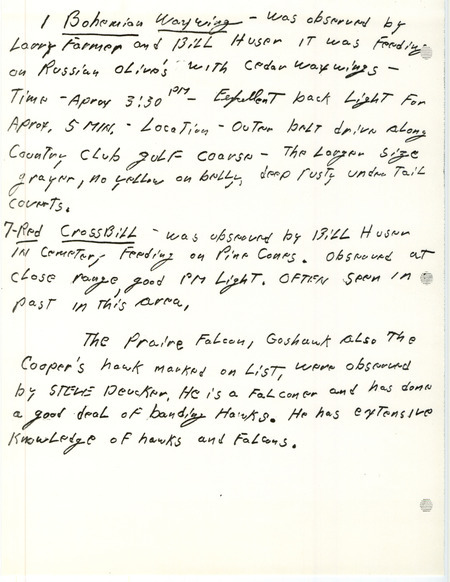 1 Bohemian Waxwing - was observed by
Larry Farmer and Bill Huser it was Feeding
on Russian olive's with Cedar waxwings -
Time - Aprox 3:30 PM - Excellent back Light For
Aprox. 5 MIN. - Location - Outer belt drive along
Country Club gulf Coarse - The Larger Size
grayer, no yellow on belly, deep rusty under Tail
Coverts.
7-Red CrossBill - was observed by Bill Huser
IN Cemetery Feeding on Pine Cones. Observed at
close range, good PM Light. OFTEN Seen in
past in this area,
The Praire Falcon, Goshawk also The
Cooper's hawk marked on LIST, were observed
by STEVE Deucker. He is a Falconer and has done
a good deal of banding Hawks. He has extensive
Knowledge of hawks and Falcons.